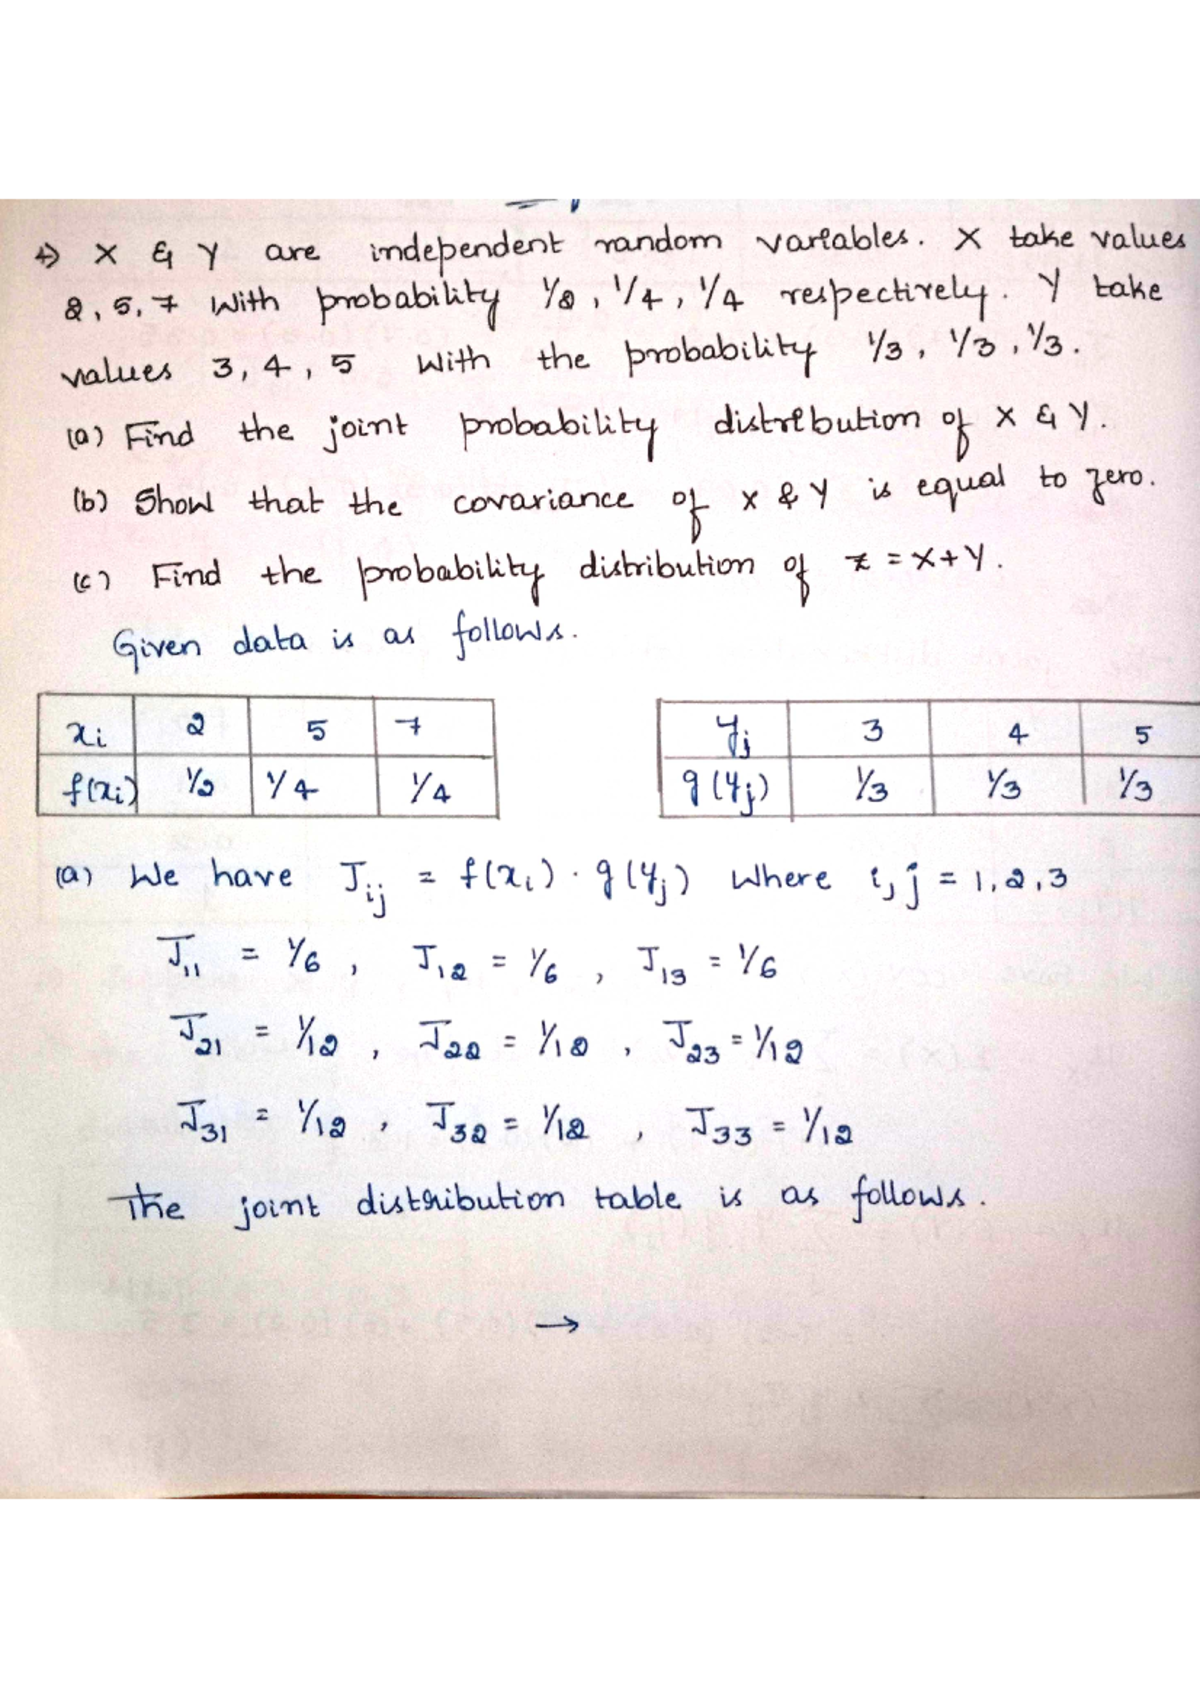 4) X & Y are independent random variables. X take values
2, 5, 7 With probability 1/2, 1/4, 1/4 respectively. Y take
values 3, 4, 5 With the probability 1/3, 1/3, 1/3.
(a) Find the joint probability distribution of X & Y.
(b) Show that the covariance of X & Y is equal to zero.
(c) Find the probability distribution of Z = X+Y.
Given data is as follows.
xi 2 5 7
f(xi) 1/2 1/4 1/4
yj 3 4 5
g(yj) 1/3 1/3 1/3
(a) We have Jij = f(xi) · g(yj) Where i, j = 1, 2, 3
J11 = 1/6, J12 = 1/6, J13 = 1/6
J21 = 1/12, J22 = 1/12, J23 = 1/12
J31 = 1/12, J32 = 1/12, J33 = 1/12
The joint distribution table is as follows.
→